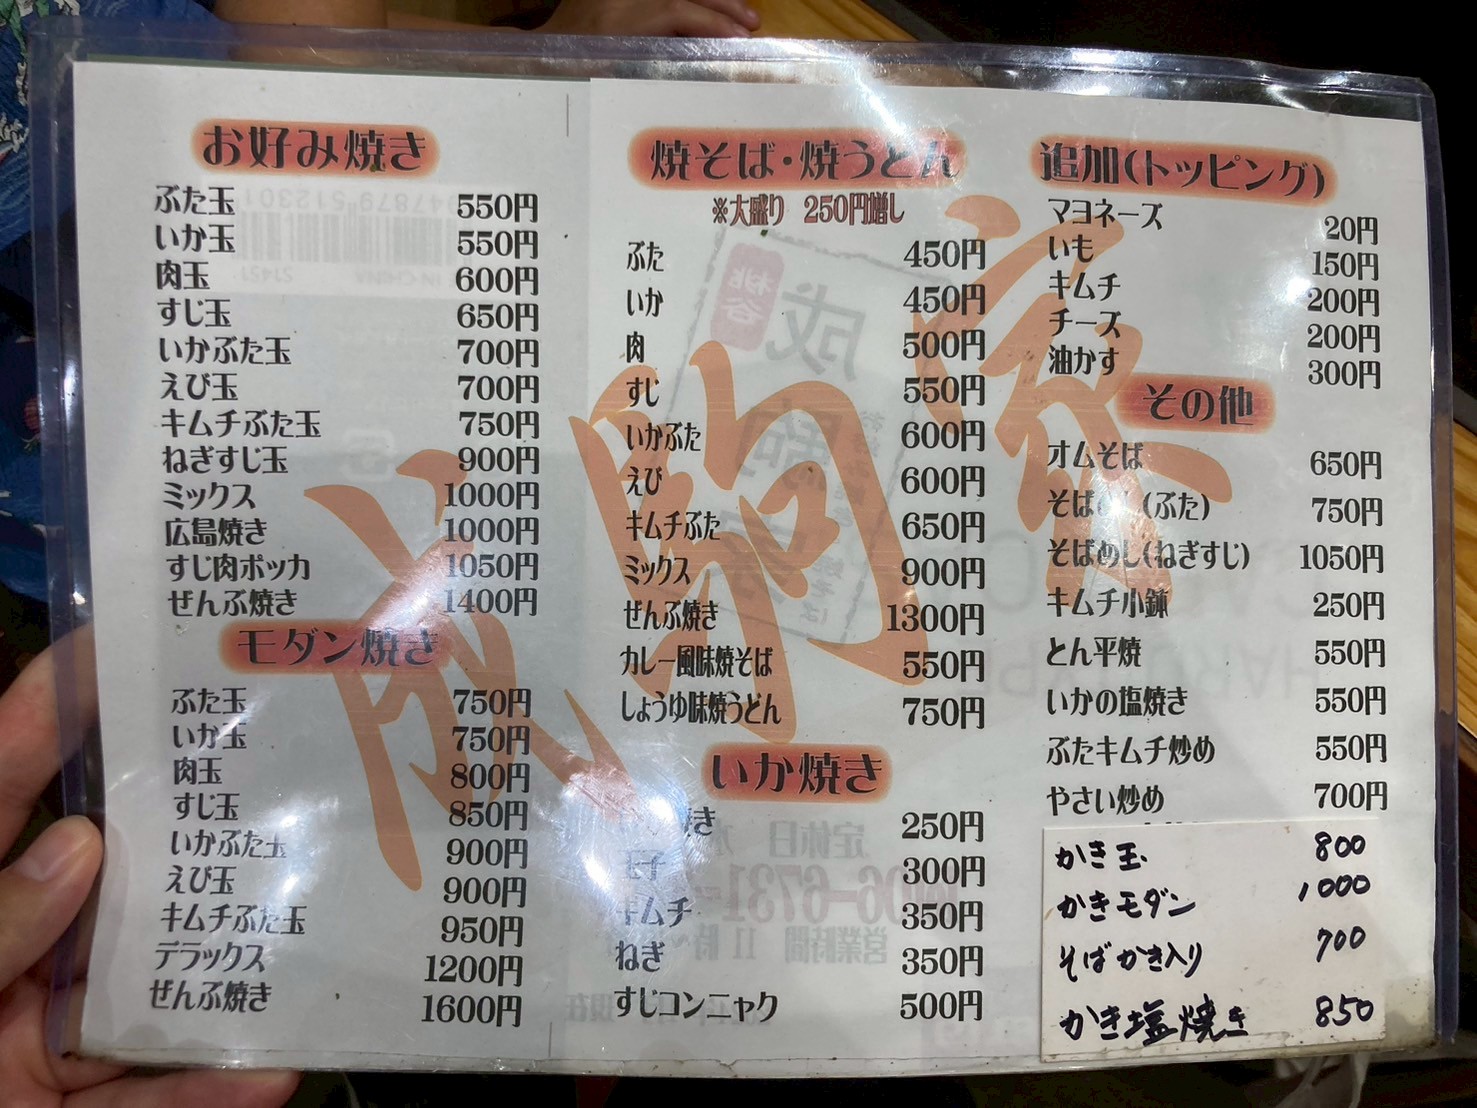 お好み焼き
ぶた玉 550円
いか玉 550円
肉玉 600円
すじ玉 650円
いかぶた玉 700円
えび玉 700円
キムチぶた玉 750円
ねぎすじ玉 900円
ミックス 1000円
広島焼き 1000円
すじ肉ポッカ 1050円
ぜんぶ焼き 1400円
モダン焼き
ぶた玉 750円
いか玉 750円
肉玉 800円
すじ玉 850円
いかぶた玉 900円
えび玉 900円
キムチぶた玉 950円
デラックス 1200円
ぜんぶ焼き 1600円
焼そば・焼うどん
※大盛り 250円増し
ぶた 450円
いか 450円
肉 500円
すじ 550円
いかぶた 600円
えび 600円
キムチぶた 650円
ミックス 900円
ぜんぶ焼き 1300円
カレー風味焼そば 550円
しょうゆ味焼うどん 750円
いか焼き
き 250円
300円
キムチ 350円
ねぎ 350円
すじコンニャク 500円
追加(トッピング)
マヨネーズ 20円
いも 150円
キムチ 200円
チーズ 200円
油かす 300円
その他
オムそば 650円
そば (ぶた) 750円
そばめし(ねぎすじ) 1050円
キムチ小鉢 250円
とん平焼 550円
いかの塩焼き 550円
ぶたキムチ炒め 550円
やさい炒め 700円
かき玉 800
かきモダン 1000
そばかき入り 700
かき塩焼き 850
成駒家